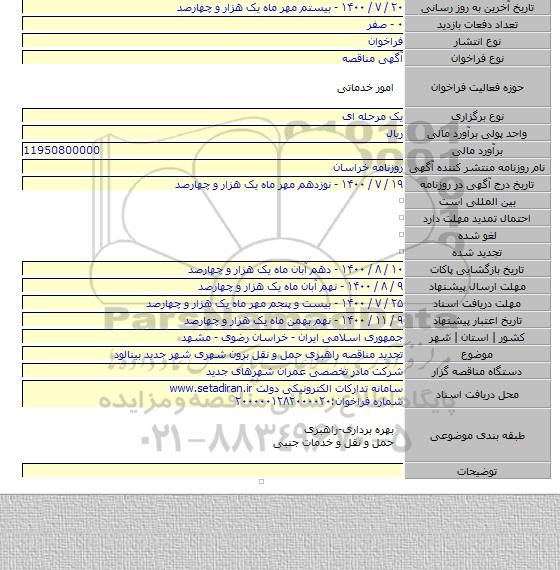 تاریخ آخرین به روز رسانی ۲۰ / ۷ / ۱۴۰۰ - بیستم مهر ماه یک هزار و چهارصد
تعداد دفعات بازدید ۰ - صفر
نوع انتشار فراخوان
نوع فراخوان آگهی مناقصه
حوزه فعالیت فراخوان امور خدماتی
نوع برگزاری یک مرحله ای
واحد پولی برآورد مالی ریال
برآورد مالی 11950800000
نام روزنامه منتشر کننده آگهی روزنامه خراسان
تاریخ درج آگهی در روزنامه ۱۹ / ۷ / ۱۴۰۰ - نوزدهم مهر ماه یک هزار و چهارصد
بین المللی است
احتمال تمدید مهلت دارد
لغو شده
تجدید شده
تاریخ بازگشایی پاکات ۱۰ / ۸ / ۱۴۰۰ - دهم آبان ماه یک هزار و چهارصد
مهلت ارسال پیشنهاد ۹ / ۸ / ۱۴۰۰ - نهم آبان ماه یک هزار و چهارصد
مهلت دریافت اسناد ۲۵ / ۷ / ۱۴۰۰ - بیست و پنجم مهر ماه یک هزار و چهارصد
تاریخ اعتبار پیشنهاد ۹ / ۱۱ / ۱۴۰۰ - نهم بهمن ماه یک هزار و چهارصد
کشور | استان | شهر جمهوری اسلامی ایران - خراسان رضوی - مشهد
موضوع تجدید مناقصه راهبری حمل و نقل برون شهری شهر جدید بینالود
دستگاه مناقصه گزار شرکت مادر تخصصی عمران شهرهای جدید
محل دریافت اسناد سامانه تدارکات الکترونیکی دولت www.setadiran.ir
شماره فراخوان:۲۰۰۰۰۰۱۲۸۲۰۰۰۰۲۰
طبقه بندی موضوعی بهره برداری-راهبری
حمل و نقل و خدمات جنبی
توضیحات
ParsNamadData
پایگاه اطلاع رسانی مناقصه و مزایده
۰۲۱-۸۸۳۴۹۶۷۰-۵